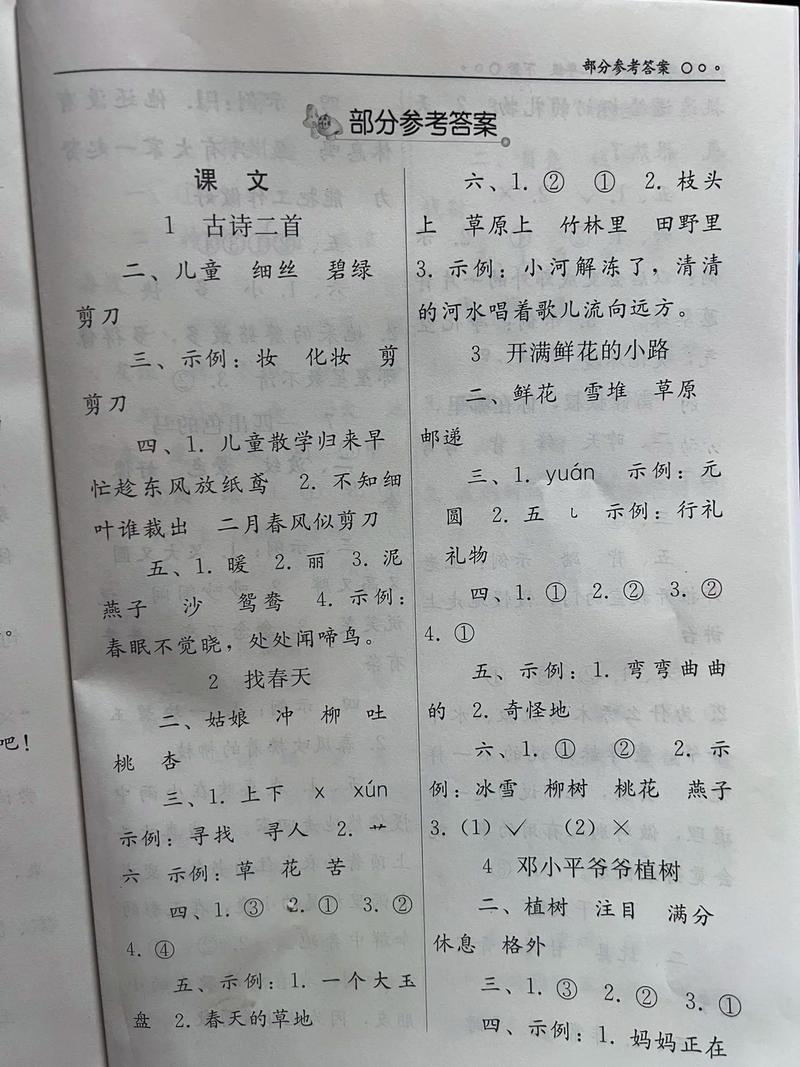 部分参考答案
部分参考答案
课 文
1 古诗二首
二、儿童 细丝 碧绿
剪刀
三、示例：妆 化妆 剪
剪刀
四、1. 儿童散学归来早
忙趁东风放纸鸢 2. 不知细
叶谁裁出 二月春风似剪刀
五、1. 暖 2. 丽 3. 泥
燕子 沙 鸳鸯 4. 示例：
春眠不觉晓，处处闻啼鸟。
2 找春天
二、姑娘 冲 柳 吐
桃 杏
三、1. 上下 x xún
示例：寻找 寻人 2. 艹
六 示例：草 花 苦
四、1. ③ 2. ① 3. ②
4. ④
五、示例：1. 一个大玉
盘 2. 春天的草地
六、1. ② ① 2. 枝头
上 草原上 竹林里 田野里
3. 示例：小河解冻了，清清
的河水唱着歌儿流向远方。
3 开满鲜花的小路
二、鲜花 雪堆 草原
邮递
三、1. yuán 示例：元
圆 2. 五 ㇟ 示例：行礼
礼物
四、1. ① 2. ② 3. ②
4. ①
五、示例：1. 弯弯曲曲
的 2. 奇怪地
六、1. ① ② 2. 示
例：冰雪 柳树 桃花 燕子
3.（1）✓ （2）×
4 邓小平爷爷植树
二、植树 注目 满分
休息 格外
三、1. ③ 2. ② 3. ①
四、示例：1. 妈妈正在
。
吧！